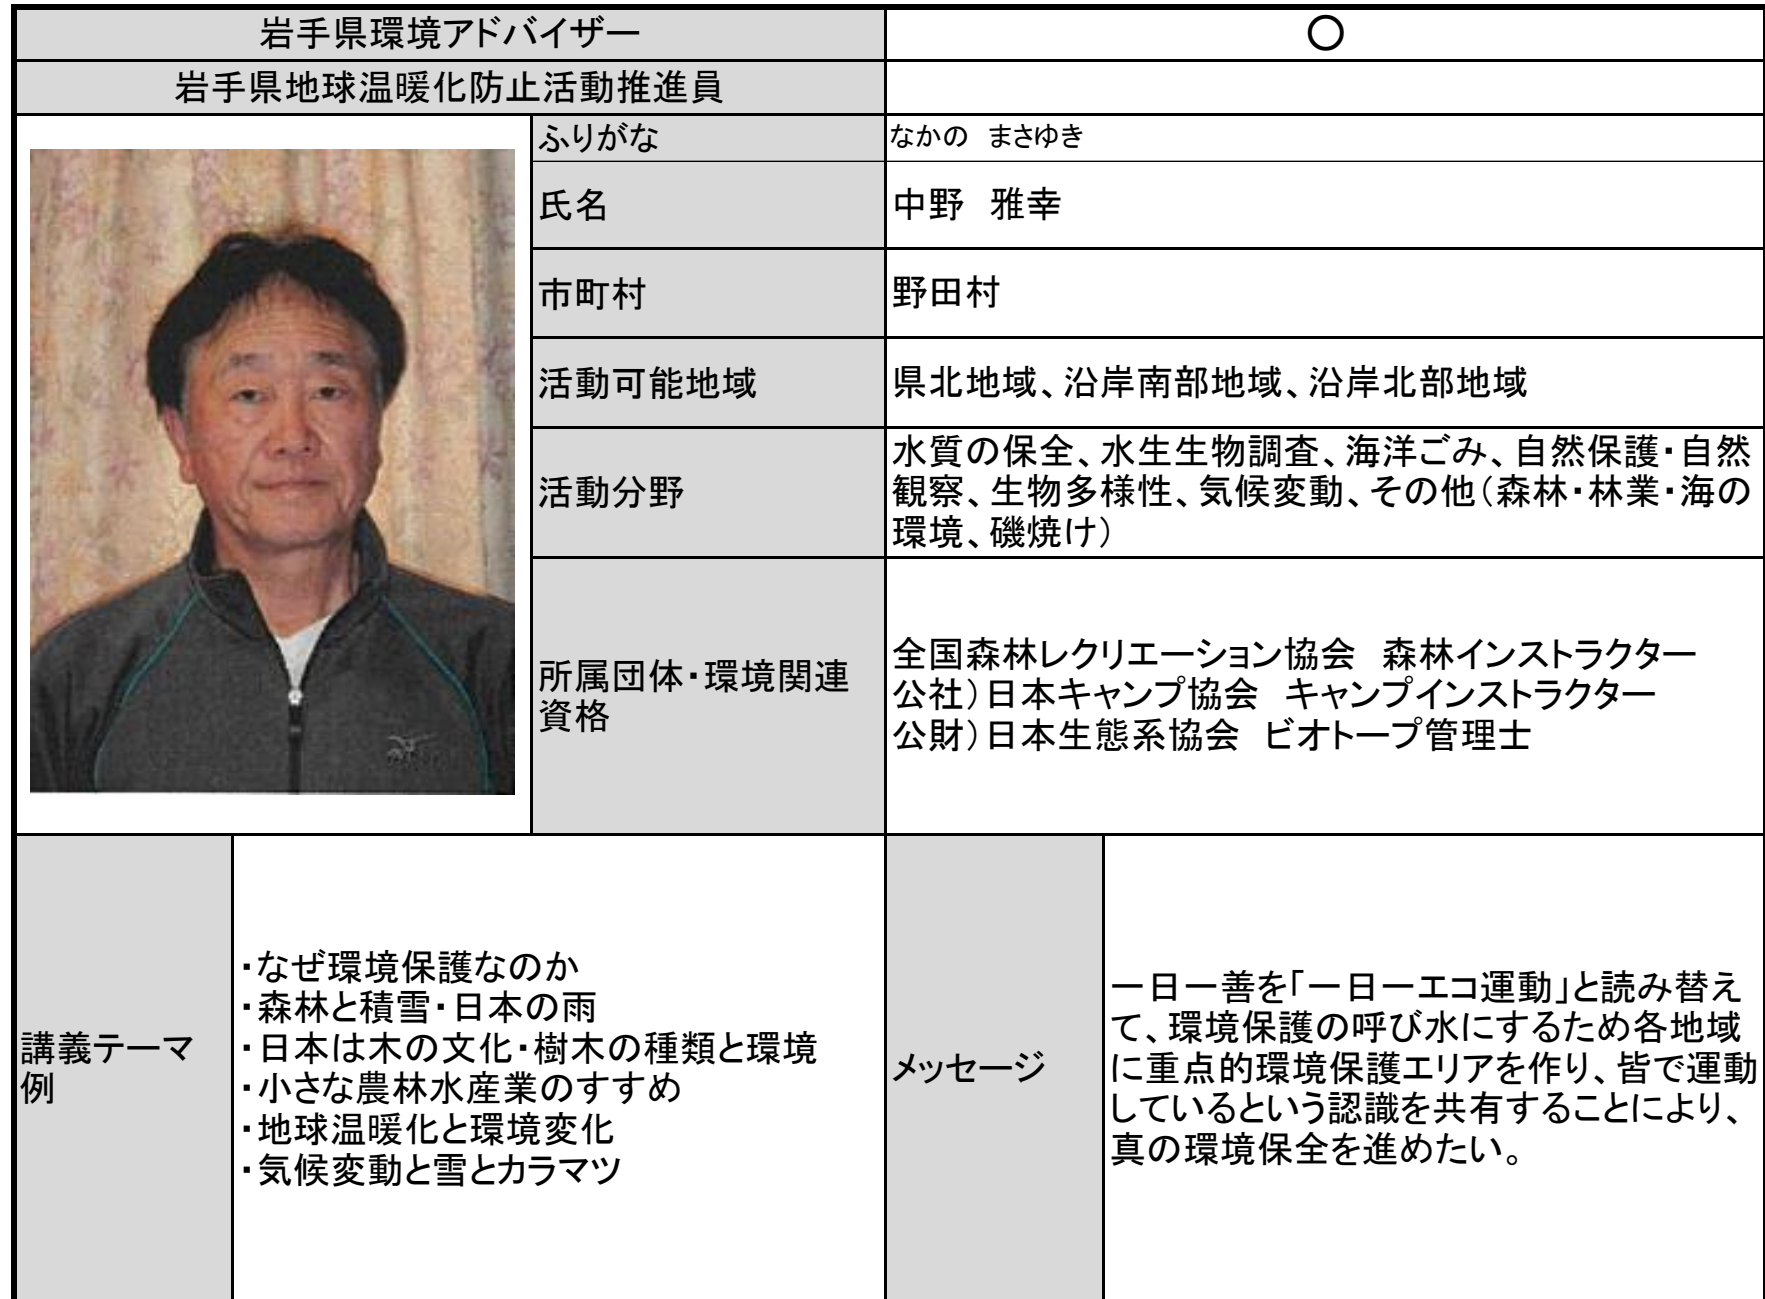 岩手県環境アドバイザー
○
岩手県地球温暖化防止活動推進員
ふりがな
なかの　まさゆき
氏名
中野　雅幸
市町村
野田村
活動可能地域
県北地域、沿岸南部地域、沿岸北部地域
活動分野
水質の保全、水生生物調査、海洋ごみ、自然保護・自然
観察、生物多様性、気候変動、その他（森林・林業・海の
環境、磯焼け）
所属団体・環境関連
資格
全国森林レクリエーション協会　森林インストラクター
公社）日本キャンプ協会　キャンプインストラクター
公財）日本生態系協会　ビオトープ管理士
講義テーマ
例
・なぜ環境保護なのか
・森林と積雪・日本の雨
・日本は木の文化・樹木の種類と環境
・小さな農林水産業のすすめ
・地球温暖化と環境変化
・気候変動と雪とカラマツ
メッセージ
一日一善を「一日一エコ運動」と読み替え
て、環境保護の呼び水にするため各地域
に重点的環境保護エリアを作り、皆で運動
しているという認識を共有することにより、
真の環境保全を進めたい。